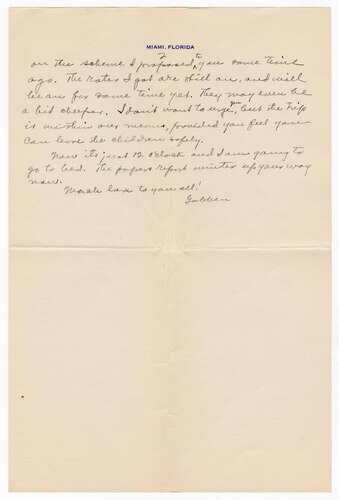 MIAMI, FLORIDA
on the scheme I proposed to you some time
ago. The rates I got are still on, and will
be on for some time yet. They may even be
a bit cheaper. I don't want to urge you, but the trip
is within our means, provided you feel you
can leave the children safely.
Now it's just 12 o'clock and I am going to
go to bed. The papers report winter up your way
now.
Much love to you all!